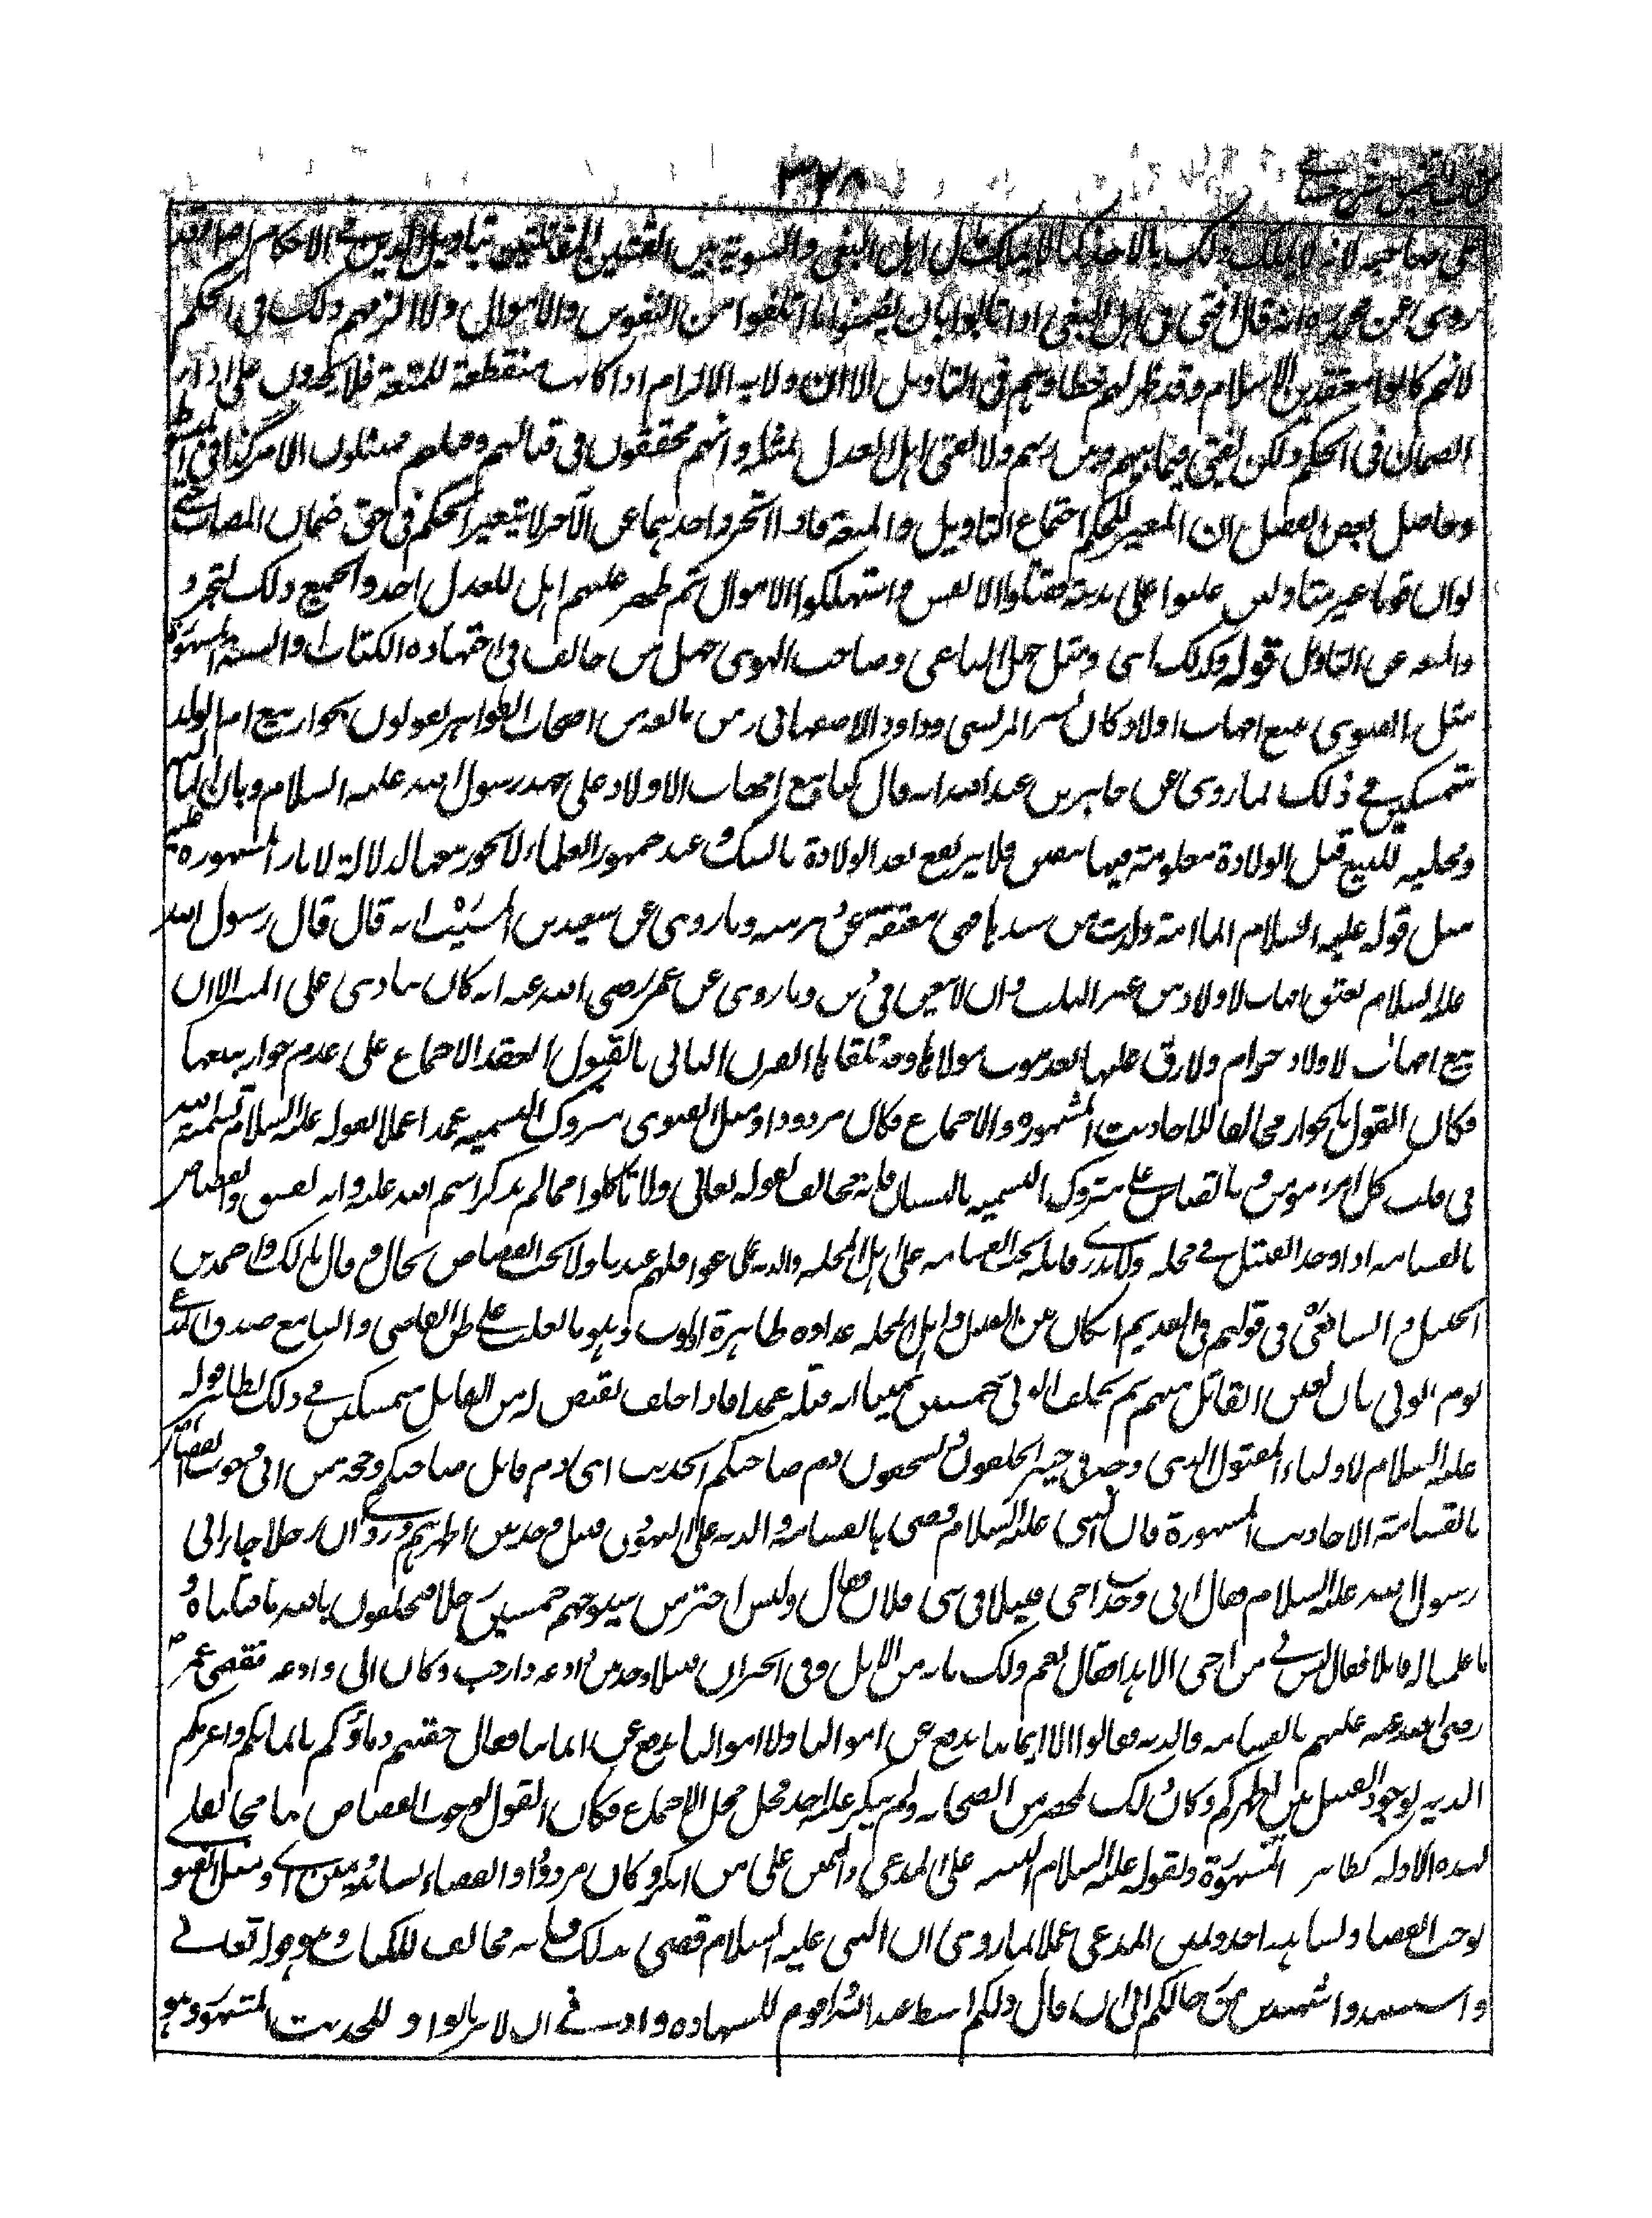 ٣٢٨
على صاحبه لانه لا يملك ذلك بالاخذ كما لا يملك مال اهل البغى والتسوية بين الفئتين المقاتلتين بتاويل الدين فى الاحكام
روى عن محمد انه قال افتى فى اهل البغى اذا تابوا بان يضمنوا ما اتلفوا من النفوس والاموال ولا الزمهم ذلك فى الحكم
لانهم كانوا معتقدين الاسلام وقد ظهر لهم خطاؤهم فى التاويل الا ان ولاية الالزام اذا كانت منقطعة للمنعة فلا يجبرون على اداء
الضمان فى الحكم ولكن يفتى فيما بينهم وبين ربهم ولا يفتى اهل العدل بمثله وانهم محقون فى قتالهم وقتلهم ممتثلون الامر كذا فى
وحاصل بعض الفصل ان المغير للحكم اجتماع التاويل والمنعة فاذا تجرد احدهما عن الآخر لا يتغير الحكم فى حق ضمان المصاب حتى
لو ان قوما غير متاولين غلبوا على مدينة فقتلوا الانفس واستهلكوا الاموال ثم ظهر عليهم اهل العدل اخذوا بجميع ذلك لتجرد
والمنعة عن التاويل قوله وكذلك اى ومثل جهل الباغى وصاحب الهوى جهل من خالف فى اجتهاده الكتاب والسنة المشهورة
مثل الفتوى ببيع امهات اولاد كان بشر المريسى وداود الاصفهانى ومن تابعه من اصحاب الظواهر يقولون بجواز بيع ام الولد
متمسكين فى ذلك بما روى عن جابر بن عبد الله انه قال كنا نبيع امهات الاولاد على عهد رسول الله عليه السلام وبان المالية
ومحلية للبيع قبل الولادة معلومة فيها بيقين فلا يرتفع بعد الولادة بالشك وعند جمهور العلماء لا يجوز بيعها لدلالة الآثار المشهورة عليه
مثل قوله عليه السلام ايما امة ولدت من سيدها فهى معتقة عن دبر منه وما روى عن سعيد بن المسيب انه قال قال رسول الله
عليه السلام بعتق امهات الاولاد من غير الثلث وان لا يبعن فى دين وما روى عن عمر رضى الله عنه انه كان ينادى على المنبر الا ان
بيع امهات الاولاد حرام ولا رق عليها بعد موت مولاها وقد تلقاها القرن الثانى بالقبول انعقد الاجماع على عدم جواز بيعها
فكان القول بالجواز مخالفا للاحاديث المشهورة والاجماع فكان مردودا ومثل الفتوى بمتروك التسمية عمدا عملا بقوله عليه السلام تسمية الله
فى قلب كل امرء مؤمن وبالقياس على متروك التسمية بالنسيان فانه مخالف لقوله تعالى ولا تاكلوا مما لم يذكر اسم الله عليه وانه لفسق والقصاص
بالقسامة اذا وجد القتيل فى محلة ولا يدرى قاتله يجب القسامة على اهل المحلة والدية على عواقلهم عندنا ولا يجب القصاص بحال وقال مالك واحمد بن
الحنبل والشافعى فى قولهم القديم ان كان بين القتيل واهل المحلة عداوة ظاهرة ولوث وهو ما يغلب على ظن القاضى والسامع صدق المدعى
يؤمر الولى بان يعين القاتل منهم ثم يحلف الولى خمسين يمينا انه قتله عمدا فاذا حلف يقتص له من القاتل متمسكين فى ذلك بظاهر قوله
عليه السلام لاولياء المقتول الذى وجد فى خيبر اتحلفون وتستحقون دم صاحبكم الحديث اى دم قاتل صاحبكم وحجة من ابى وجوب القصاص
بالقسامة الاحاديث المشهورة فان النبى عليه السلام قضى بالقسامة والدية على اليهود فى قتيل وجد بين اظهرهم وروى ان رجلا جاء الى
رسول الله عليه السلام فقال انى وجدت اخى قتيلا فى بنى فلان فقال وليس اختر من شيوخهم خمسين رجلا فيحلفون بالله ما قتلناه و
ما علمنا له قاتلا فقال ليس لى من اخى الا هذا فقال نعم ولك مائة من الابل وفى الخبر ان قتيلا وجد بين وادعة وارحب وكان الى وادعة فقضى عمر
رضى الله عنه عليهم بالقسامة والدية فقالوا لا ايماننا تدفع عن اموالنا ولا اموالنا تدفع عن ايماننا فقال حقنتم دماؤكم بايمانكم واغرمكم
الدية لوجود القتيل بين اظهركم وكان ذلك بمحضر من الصحابة ولم ينكر عليه احد فحل محل الاجماع فكان القول بوجوب القصاص بها مخالفا
لهذه الادلة الظاهرة المشهورة ولقوله عليه السلام البينة على المدعى واليمين على من انكر وكان مردودا والقضاء بشاهد ويمين اى ومثل الفتوى
بوجوب القضاء بشاهد واحد ويمين المدعى عملا بما روى ان النبى عليه السلام قضى بذلك فانه مخالف للكتاب وهو قوله تعالى
واستشهدوا شهيدين من رجالكم الى ان قال ذلكم اقسط عند الله واقوم للشهادة وادنى ان لا ترتابوا وللحديث المشهور وهو